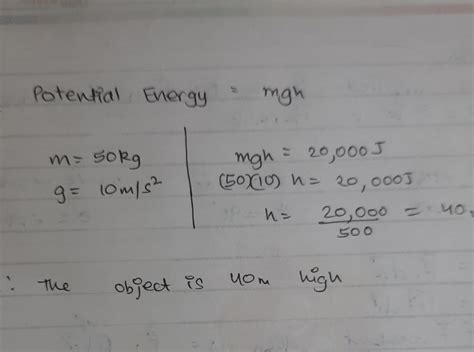 Potential Energy = mgh
m = 50kg
g = 10m/s²
mgh = 20,000J
(50)(10) h = 20,000J
h = 20,000 = 40
500
∴ The object is 40m high